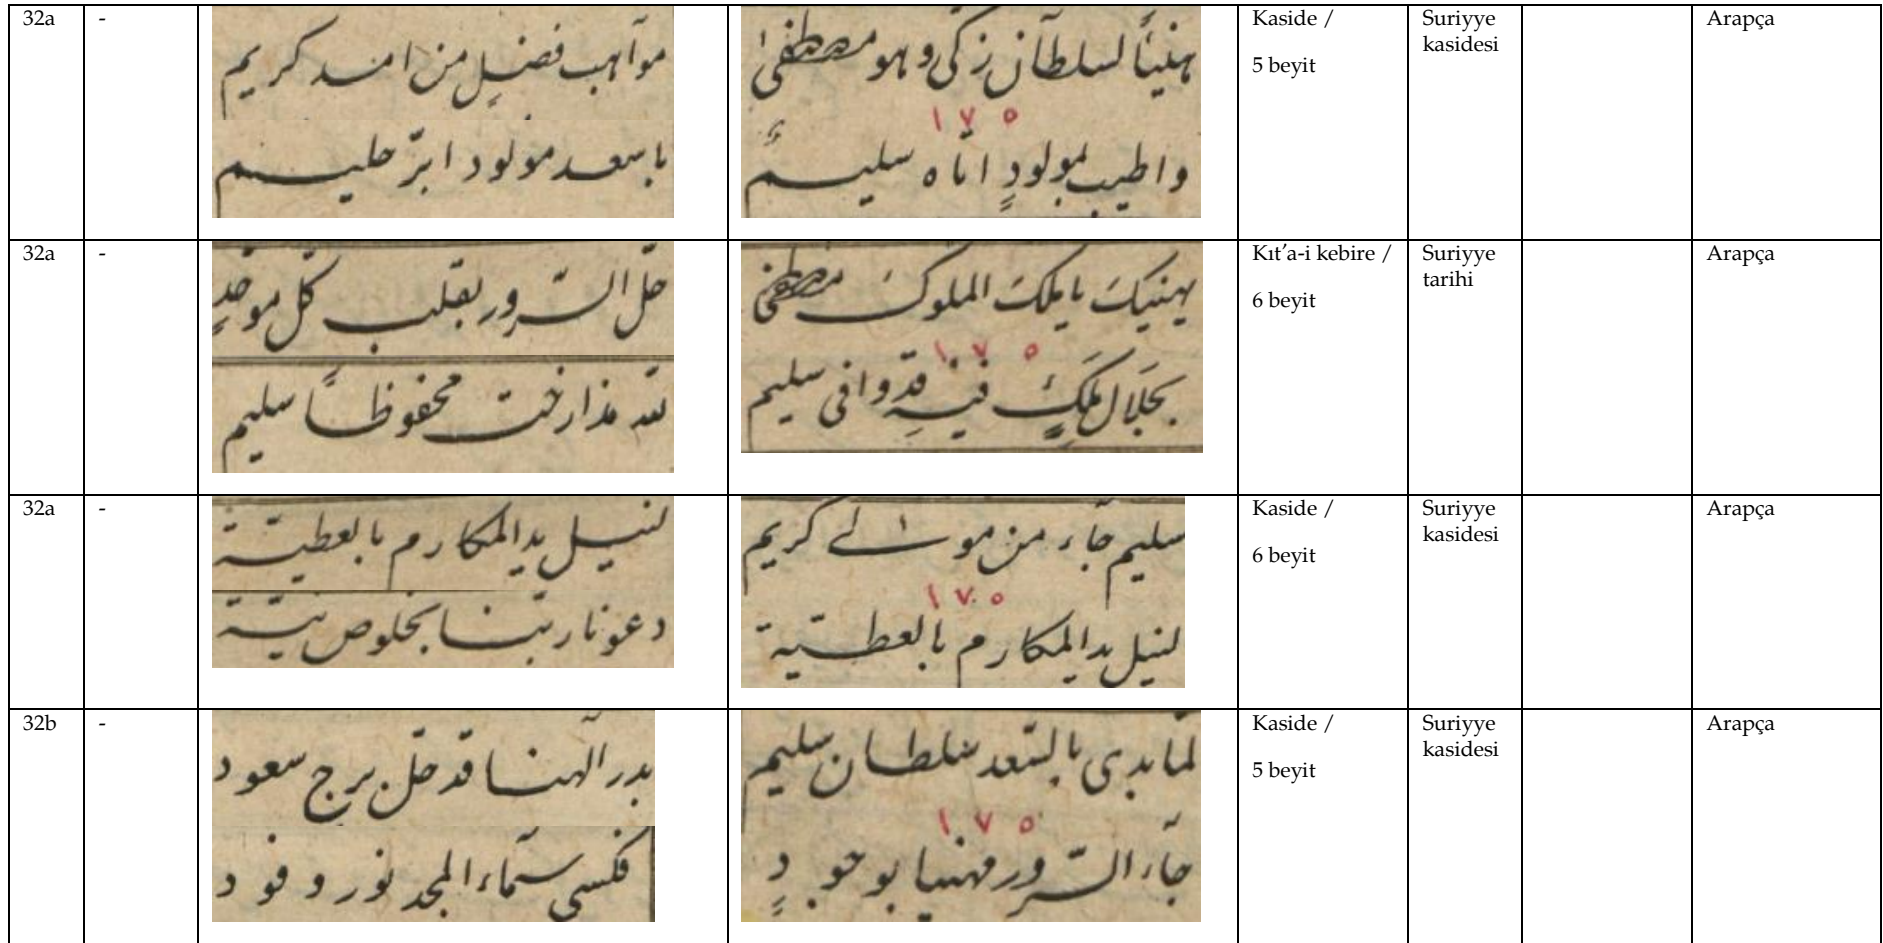 32a
-
موآهب فضلٍ من امند كريم
باسعد مولود ابرّ حليم
هنيئاً لسلطآن زكى وهو مصطفىٰ
١٧٥
واطيب بمولودٍ اتاه سليمٌ
Kaside /
5 beyit
Suriyye
kasidesi
Arapça
32a
-
حلّ السّرور بقلب كلّ موحّدٍ
لله مذ ارخت محفوظاً سليم
يهنيكَ يا ملكَ الملوك مصطفىٰ
١٧٥
بجلال ملكٍ فيه قد وافى سليم
Kıt'a-i kebire /
6 beyit
Suriyye
tarihi
Arapça
32a
-
لنيل يد المكارم بالعطيّة
دعونا ربّنا بخلوص نيّة
سليم جآء من مولىٰ كريم
١٧٥
لنيل يد المكارم بالعطيّة
Kaside /
6 beyit
Suriyye
kasidesi
Arapça
32b
-
بدر الهنا قد حلّ برج سعود
فكسى سمآء المجد نور وفود
لمّا بدى بالسّعد سلطان سليم
١٧٥
جآء السّرور مهنيا بوجودٍ
Kaside /
5 beyit
Suriyye
kasidesi
Arapça